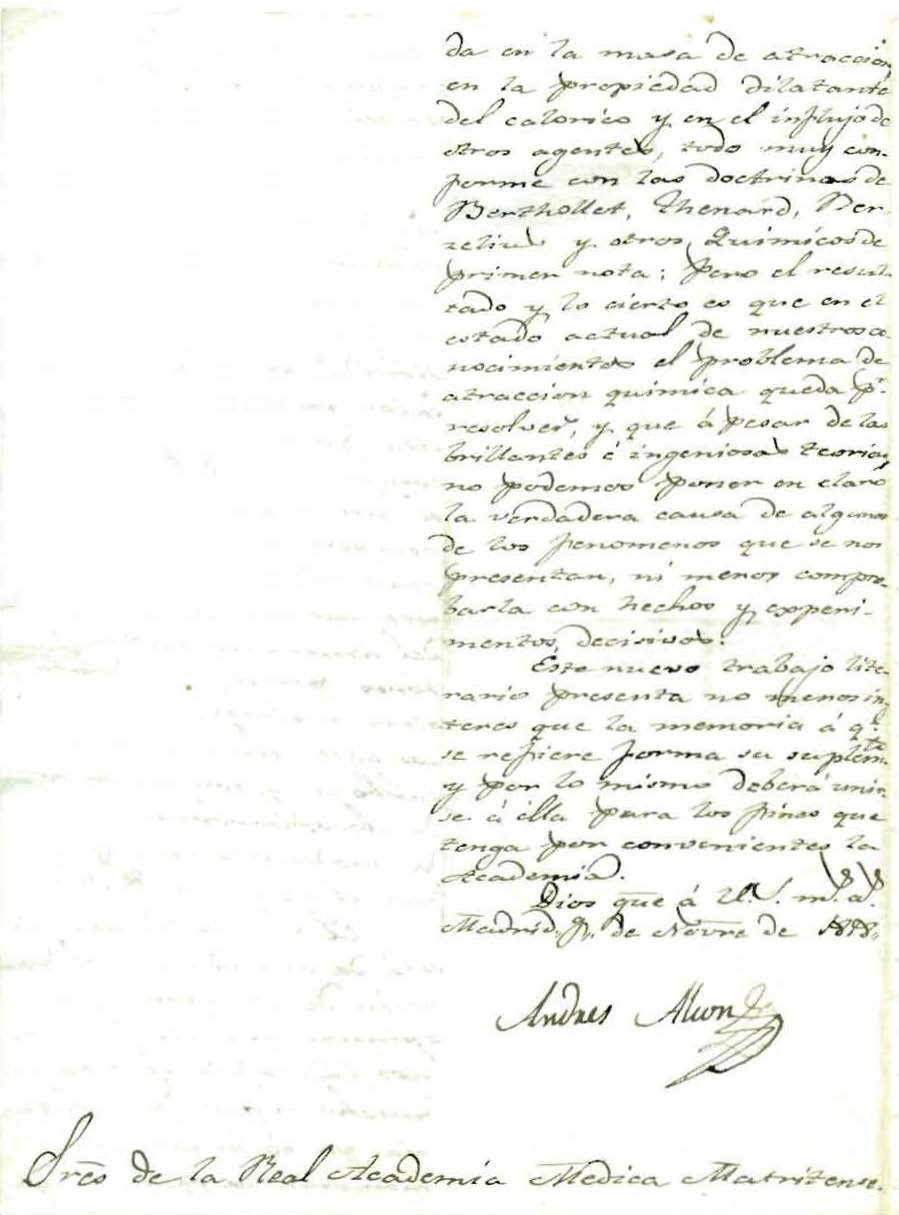 da en la masa de atraccion,
en la propiedad dilatante
del calorico y en el influjo de
otros agentes, todo muy con-
forme con las doctrinas de
Berthollet, Thenard, Ber-
zelius y otros Quimicos de
primer nota; pero el resul-
tado y lo cierto es que en el
estado actual de nuestros co-
nocimientos el problema de
atraccion quimica queda pr.
resolver, y que á pesar de las
brillantes é ingeniosas teorias
no podemos poner en claro
la verdadera causa de algunos
de los fenomenos que se nos
presentan, ni menos compro-
barla con hechos y experi-
mentos decisivos.
Este nuevo trabajo lite-
rario presenta no menos in-
teres que la memoria á q.e
se refiere forma su suplem.to
y por lo mismo deberá unir-
se á ella para los fines que
tenga por convenientes la
Academia.
Dios gūe á V.S. m.s a.s
Madrid de Novre de
Andres Alcon
Sres de la Real Academia Medica Matritense.